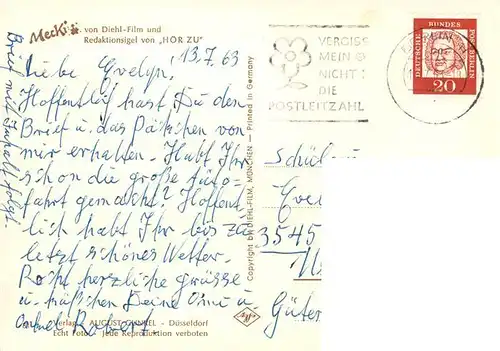 Mecki von Diehl-Film und
Redaktionsigel von „HÖR ZU"
13.7.63
Liebe Evelyn,
Hoffentlich hast Du den
Brief u. das Päckchen von
mir erhalten. Habt Ihr
schon die große Auto-
fahrt gemacht? Hoffent
lich habt Ihr bis zu
letzt schönes Wetter.
Recht herzliche Grüsse
u. Küßchen Deine Omi u.
Onkel Robert.
Brief mit Inhalt folgt.
Verlag AUGUST GUNKEL - Düsseldorf
Echt Foto - Jede Reproduktion verboten
Copyright by DIEHL-FILM, MÜNCHEN — Printed in Germany
VERGISS
MEIN
NICHT
DIE
POSTLEITZAHL
DEUTSCHE BUNDES POST BERLIN
20
Schül
Eve
3545
Güter